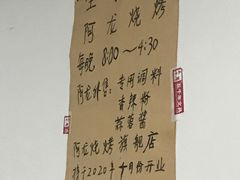 阿龙烧烤
每晚 8:00~4:30
阿龙外售:专用调料
香辣粉
蒜蓉酱
阿龙烧烤旗舰店
将于2020年 月份开业